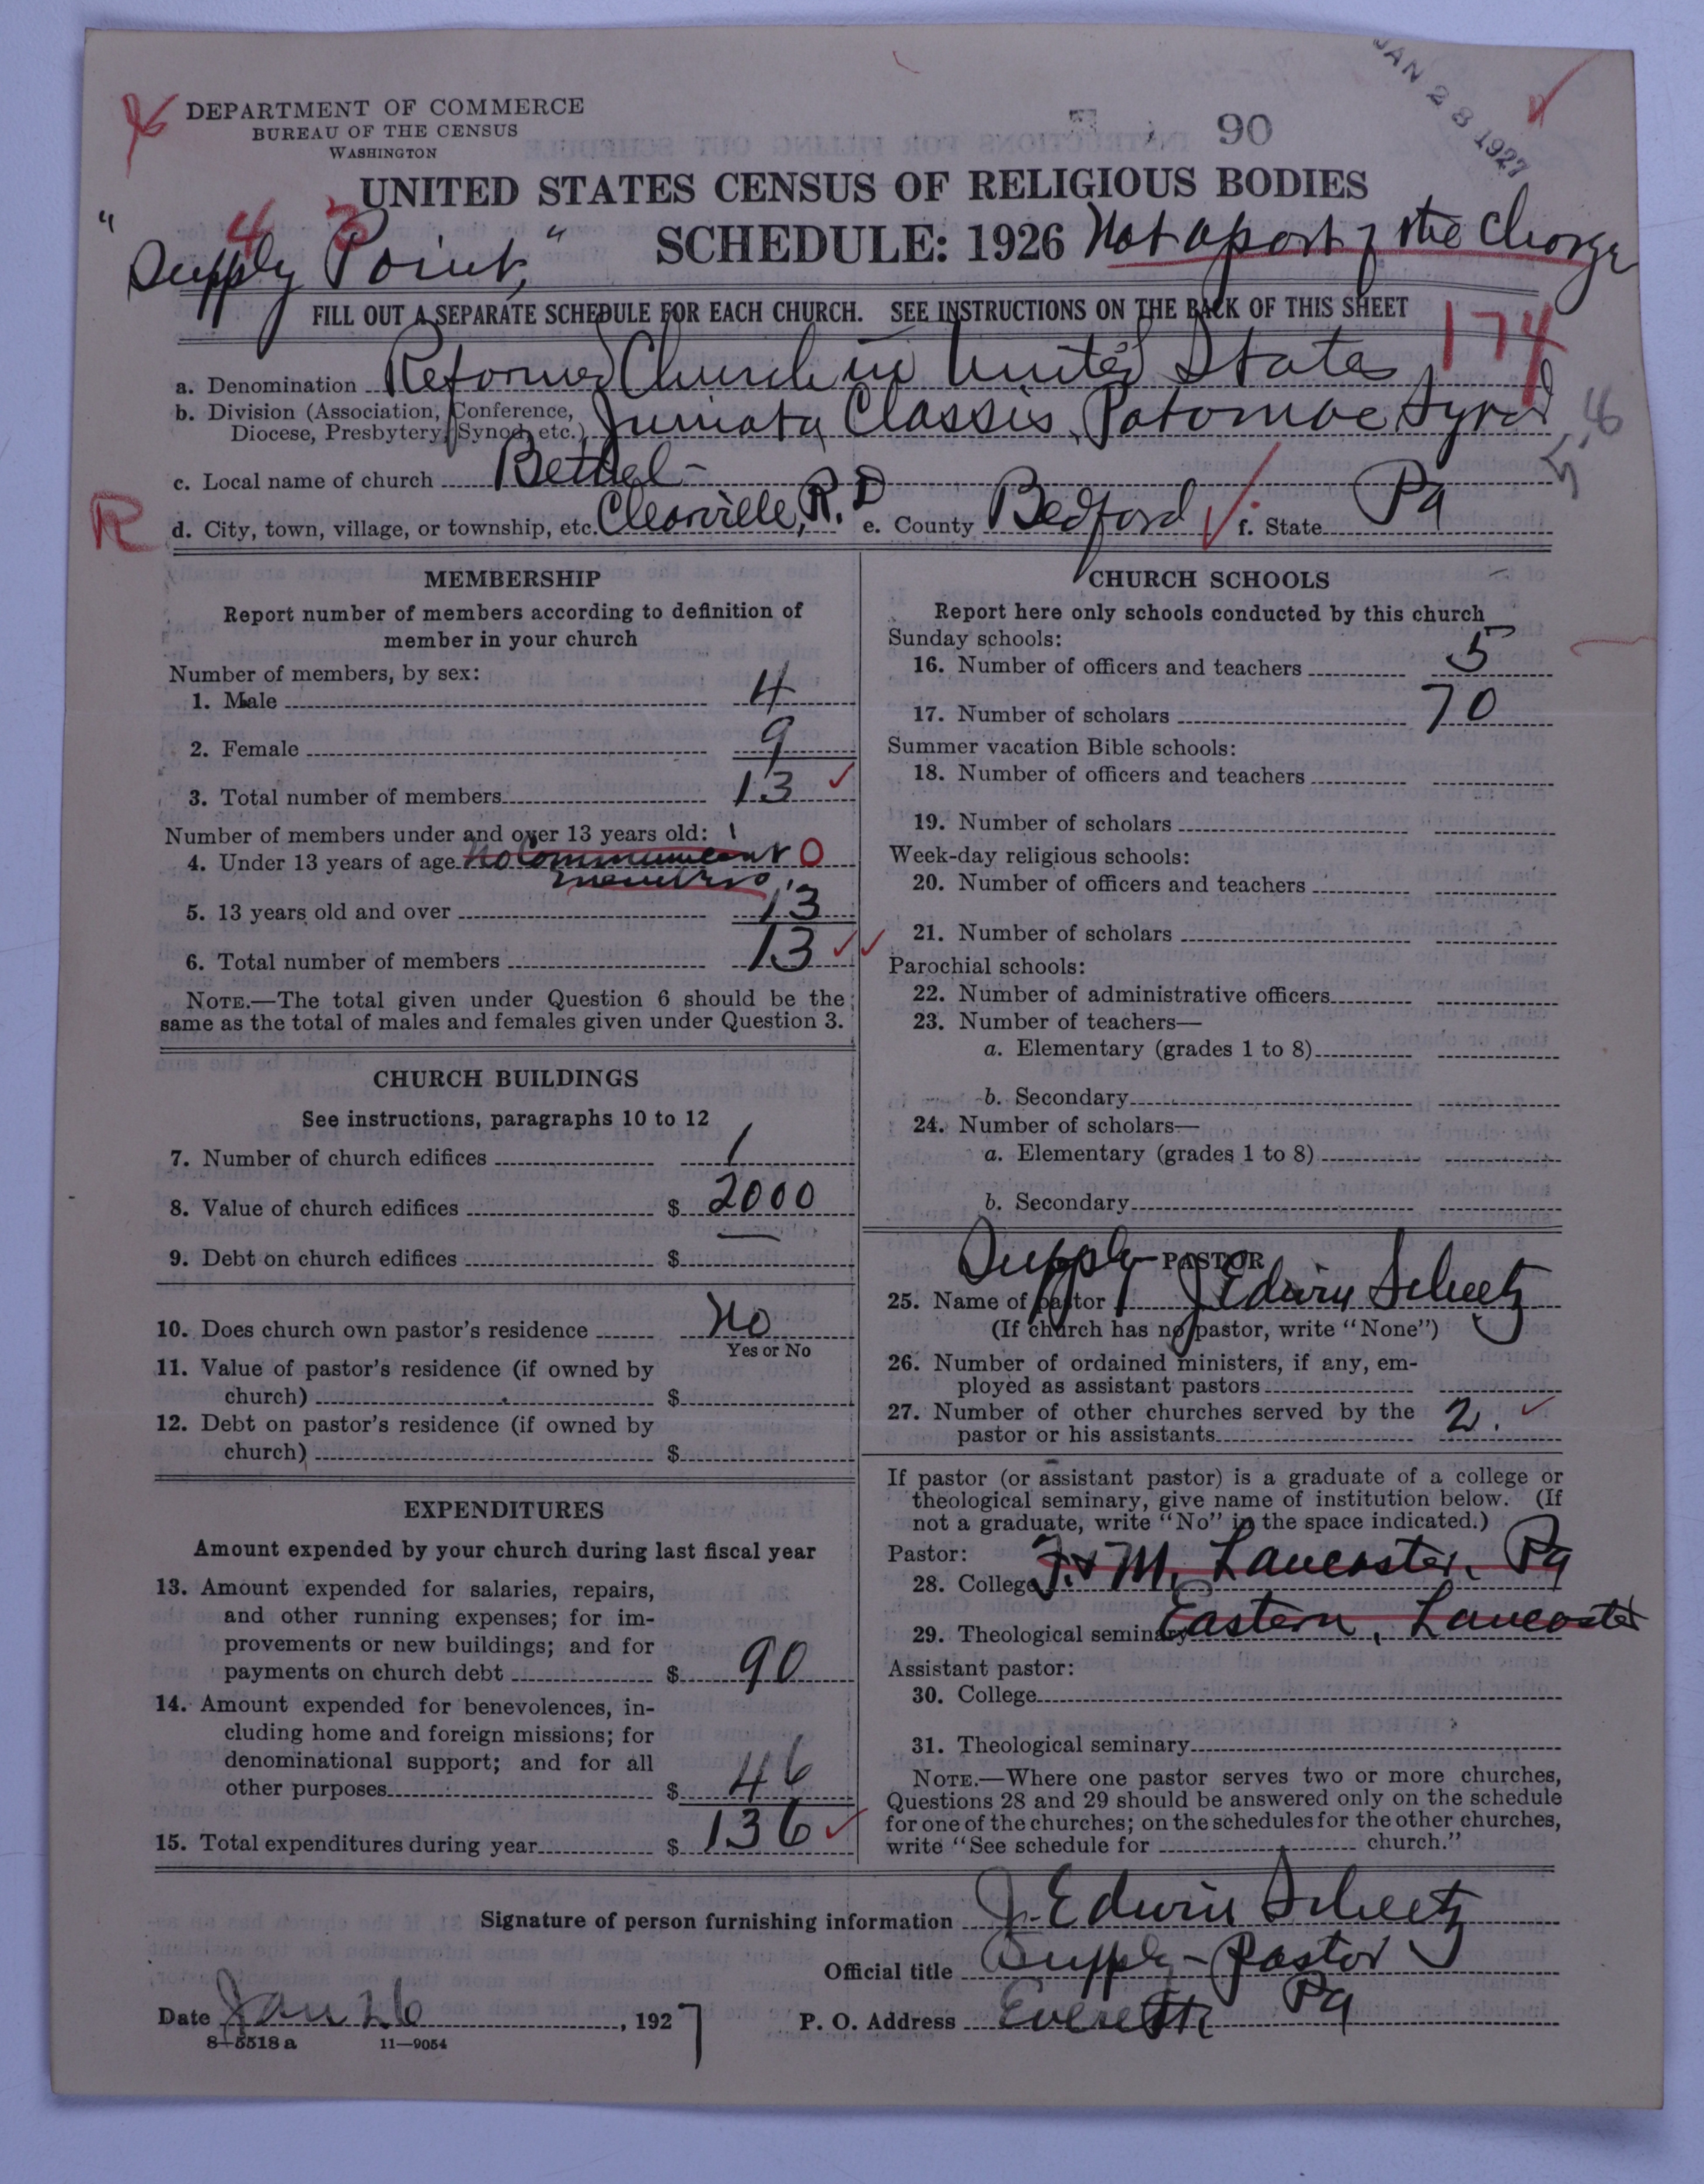 DEPARTMENT OF COMMERCE
BUREAU OF THE CENSUS
WASHINGTON
90
JAN 28 1927
UNITED STATES CENSUS OF RELIGIOUS BODIES
4 3
"Supply Point,"
SCHEDULE: 1926
Not a part of the Charge
FILL OUT A SEPARATE SCHEDULE FOR EACH CHURCH. SEE INSTRUCTIONS ON THE BACK OF THIS SHEET
174
a. Denomination Reformed Church in United States
b. Division (Association, Conference, Diocese, Presbytery, Synod, etc.) Juniata Classis, Potomac Synod
c. Local name of church Bethel-
R
d. City, town, village, or township, etc. Clearville, R.D e. County Bedford f. State Pa
MEMBERSHIP
Report number of members according to definition of
member in your church
Number of members, by sex:
1. Male 4
2. Female 9
3. Total number of members 13
Number of members under and over 13 years old:
4. Under 13 years of age No Communicant members 0
5. 13 years old and over 13
6. Total number of members 13
NOTE.—The total given under Question 6 should be the
same as the total of males and females given under Question 3.
CHURCH BUILDINGS
See instructions, paragraphs 10 to 12
7. Number of church edifices 1
8. Value of church edifices $ 2000
9. Debt on church edifices $
10. Does church own pastor's residence No
Yes or No
11. Value of pastor's residence (if owned by
church) $
12. Debt on pastor's residence (if owned by
church) $
EXPENDITURES
Amount expended by your church during last fiscal year
13. Amount expended for salaries, repairs,
and other running expenses; for im-
provements or new buildings; and for
payments on church debt $ 90
14. Amount expended for benevolences, in-
cluding home and foreign missions; for
denominational support; and for all
other purposes $ 46
15. Total expenditures during year $ 136
CHURCH SCHOOLS
Report here only schools conducted by this church
Sunday schools:
16. Number of officers and teachers 5
17. Number of scholars 70
Summer vacation Bible schools:
18. Number of officers and teachers
19. Number of scholars
Week-day religious schools:
20. Number of officers and teachers
21. Number of scholars
Parochial schools:
22. Number of administrative officers
23. Number of teachers—
a. Elementary (grades 1 to 8)
b. Secondary
24. Number of scholars—
a. Elementary (grades 1 to 8)
b. Secondary
Supply- PASTOR
25. Name of pastor J Edwin Scheetz
(If church has no pastor, write "None")
26. Number of ordained ministers, if any, em-
ployed as assistant pastors
27. Number of other churches served by the
pastor or his assistants 2.
If pastor (or assistant pastor) is a graduate of a college or
theological seminary, give name of institution below. (If
not a graduate, write "No" in the space indicated.)
Pastor:
28. College F. & M. Lancaster, Pa
29. Theological seminary Eastern, Lancaster
Assistant pastor:
30. College
31. Theological seminary
NOTE.—Where one pastor serves two or more churches,
Questions 28 and 29 should be answered only on the schedule
for one of the churches; on the schedules for the other churches,
write "See schedule for church."
Signature of person furnishing information J. Edwin Scheetz
Official title Supply-Pastor
Date Jan 26, 1927 P. O. Address Everett Pa
8-5518 a 11-9054